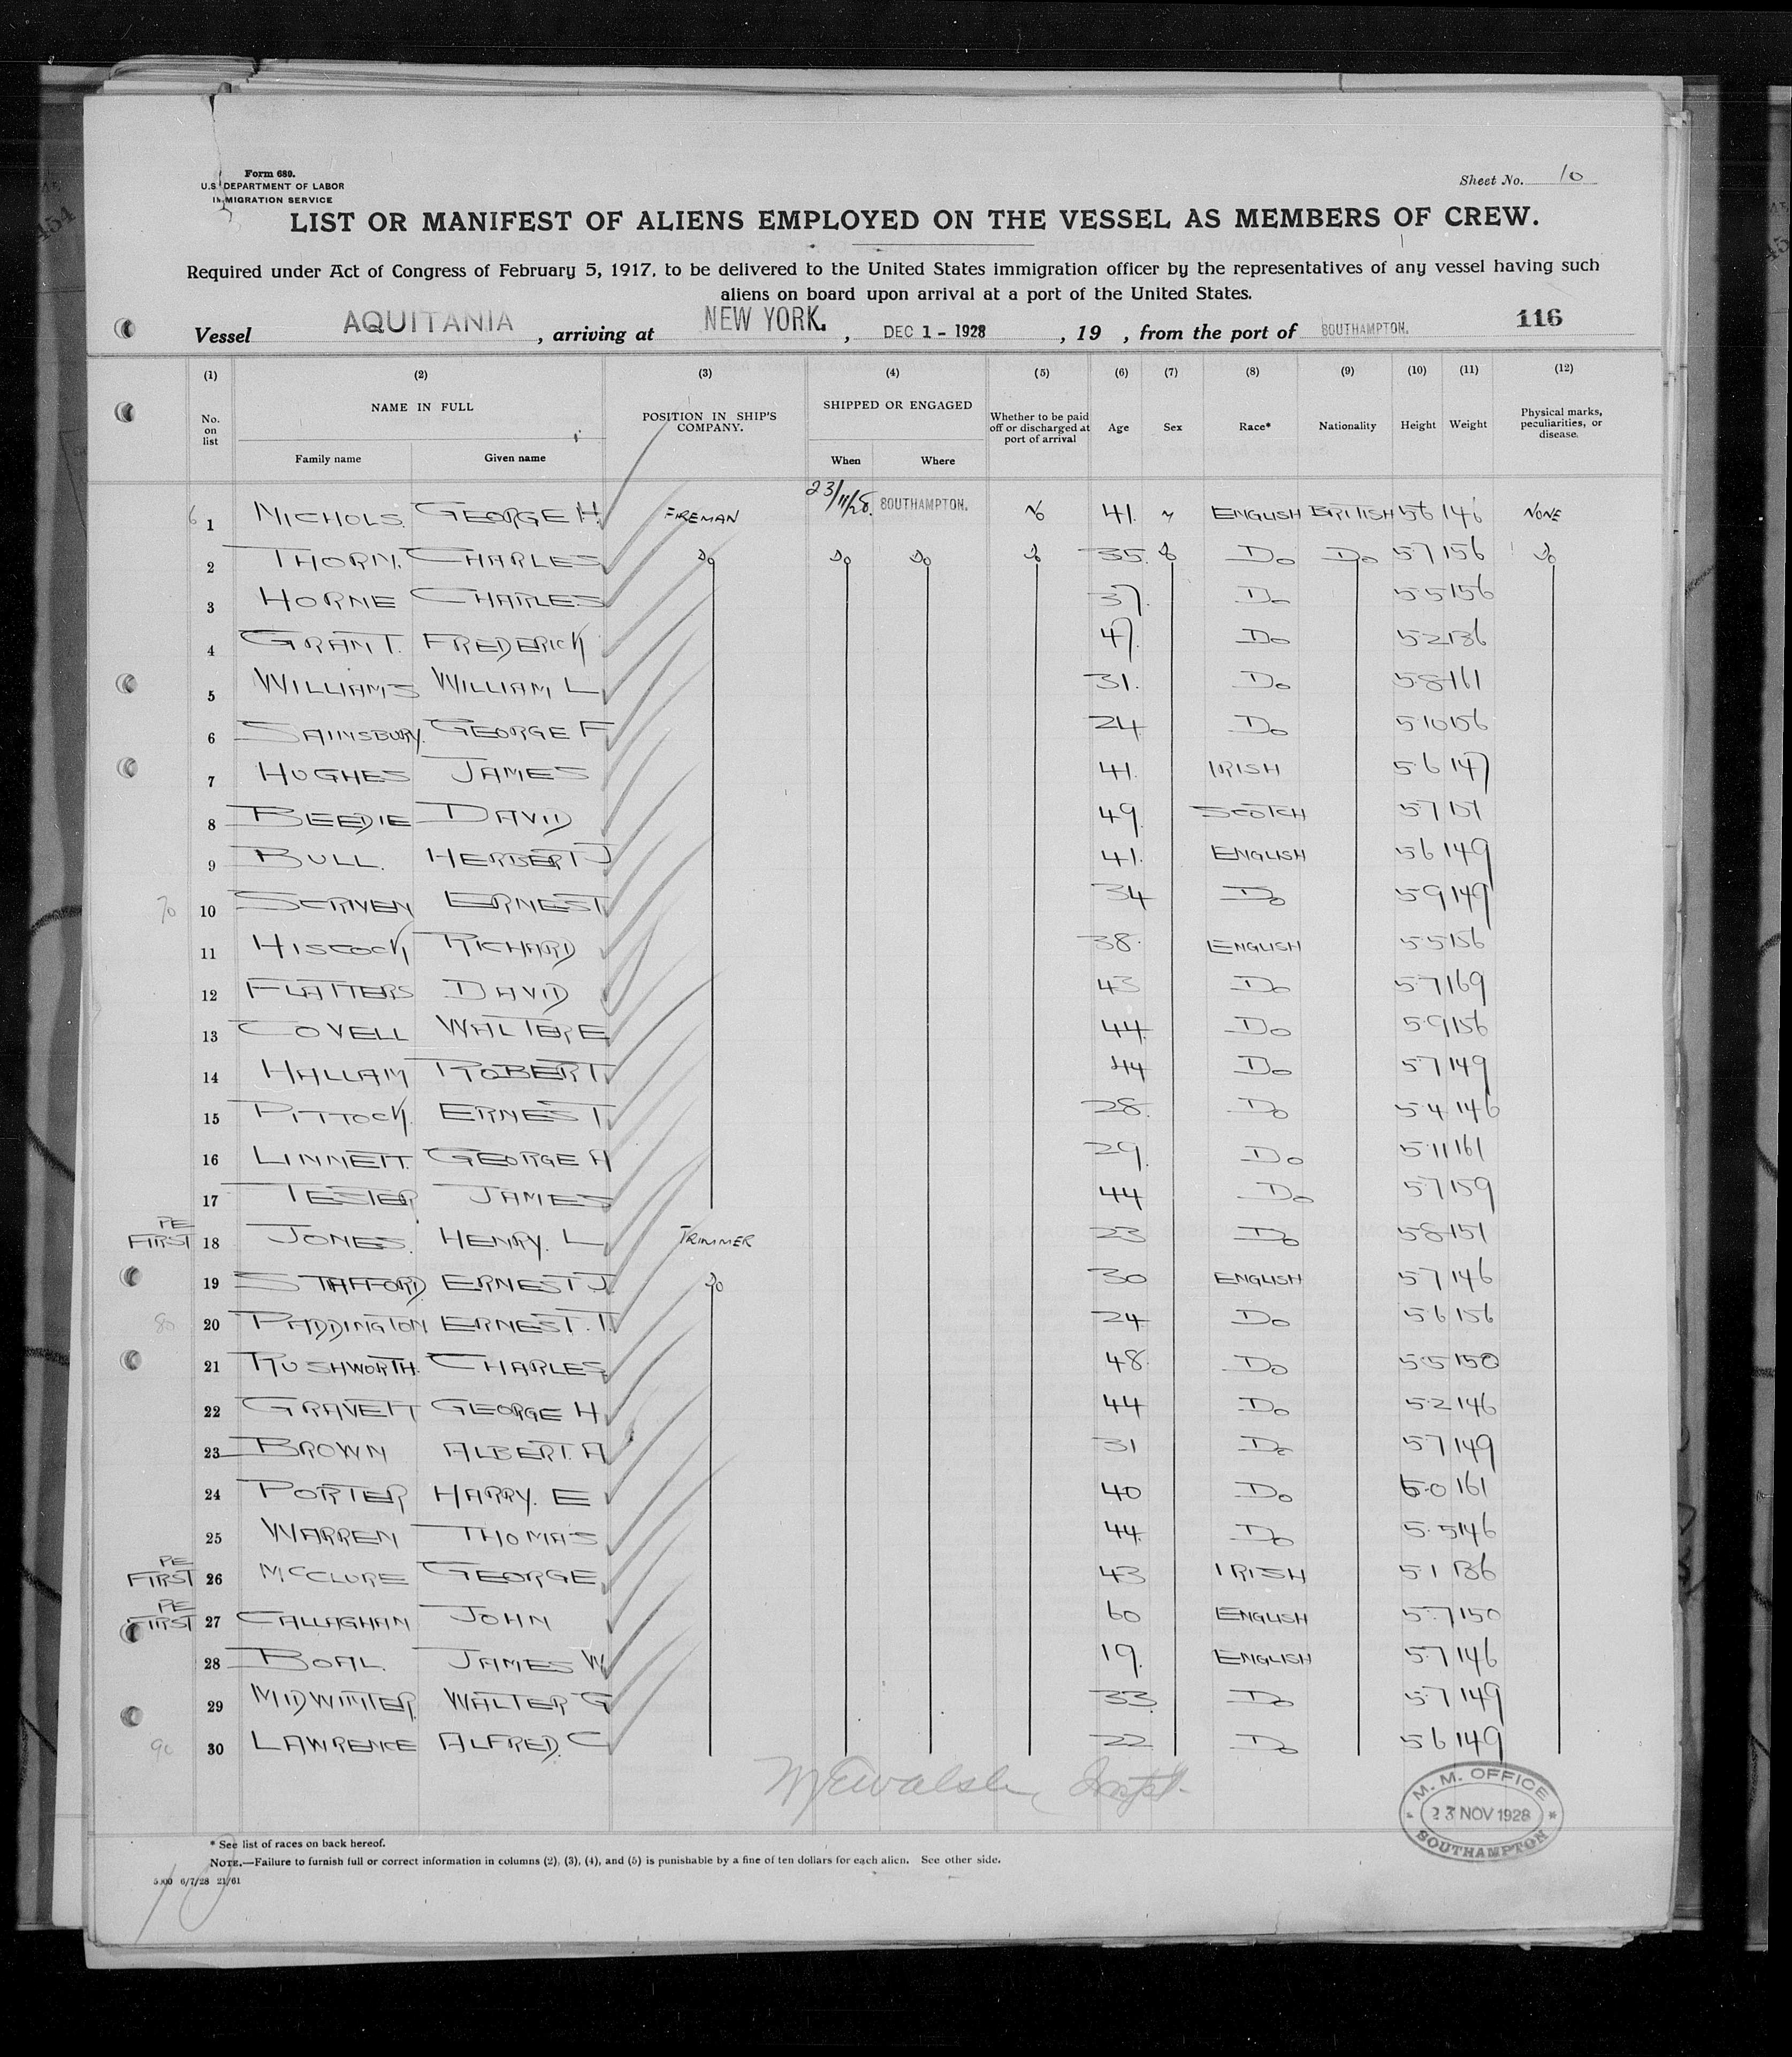 Form 689.
U.S. DEPARTMENT OF LABOR
IMMIGRATION SERVICE
Sheet No. 10
LIST OR MANIFEST OF ALIENS EMPLOYED ON THE VESSEL AS MEMBERS OF CREW.
Required under Act of Congress of February 5, 1917, to be delivered to the United States immigration officer by the representatives of any vessel having such
aliens on board upon arrival at a port of the United States.
Vessel AQUITANIA, arriving at NEW YORK., DEC 1 - 1928, 19 , from the port of SOUTHAMPTON. 116
(1) (2) (3) (4) (5) (6) (7) (8) (9) (10) (11) (12)
No. on list NAME IN FULL Family name Given name POSITION IN SHIP'S COMPANY. SHIPPED OR ENGAGED When Where Whether to be paid off or discharged at port of arrival Age Sex Race* Nationality Height Weight Physical marks, peculiarities, or disease.
1 NICHOLS. GEORGE H. FIREMAN 23/11/28. SOUTHAMPTON. No 41. M ENGLISH BRITISH 5 6 146 NONE
2 THORN. CHARLES Do Do Do Do 35. Do Do Do 5.7 156 Do
3 HORNE CHARLES 37. Do 5.5 156
4 GRANT. FREDERICK 47. Do 5.2 136
5 WILLIAMS WILLIAM L 31. Do 5.8 161
6 SAINSBURY. GEORGE F 24 Do 5.10 156
7 HUGHES JAMES 41. IRISH 5.6 147
8 BEEDIE DAVID 49. SCOTCH 5.7 151
9 BULL. HERBERT J 41. ENGLISH 5 6 149
70 10 SCRIVEN ERNEST 34 Do 5 9 149
11 HISCOCK RICHARD 38. ENGLISH 5.5 156
12 FLATTERS DAVID 43 Do 5.7 169
13 COVELL WALTER E 44. Do 5.9 156
14 HALLAM ROBERT 44 Do 5.7 149
15 PITTOCK. ERNEST 28. Do 5.4 146
16 LINNETT. GEORGE A 29. Do 5.11 161
17 TESTER JAMES 44 Do 5.7 159
PE
FIRST 18 JONES. HENRY. L TRIMMER 23 Do 5.8 151
19 STAFFORD. ERNEST J Do 30 ENGLISH 5.7 146
80 20 PADDINGTON ERNEST. T. 24 Do 5.6 156
21 RUSHWORTH. CHARLES 48. Do 5.5 150
22 GRAVETT GEORGE H 44 Do 5.2 146
23 BROWN ALBERT. A 31 Do 5.7 149
24 PORTER HARRY. E 40 Do 6.0 161
25 WARREN THOMAS 44. Do 5.5 146
PE
FIRST 26 MCCLURE GEORGE 43 IRISH 5.1 136
PE
FIRST 27 CALLAGHAN JOHN 60 ENGLISH 5.7 150
28 BOAL. JAMES W 19. ENGLISH 5.7 146
29 MIDWINTER. WALTER G 33. Do 5.7 149
90 30 LAWRENCE ALFRED. C 22 Do 5 6 149
M.M. OFFICE
23 NOV 1928
SOUTHAMPTON
* See list of races on back hereof.
NOTE.—Failure to furnish full or correct information in columns (2), (3), (4), and (5) is punishable by a fine of ten dollars for each alien. See other side.
6/7/28 21/61